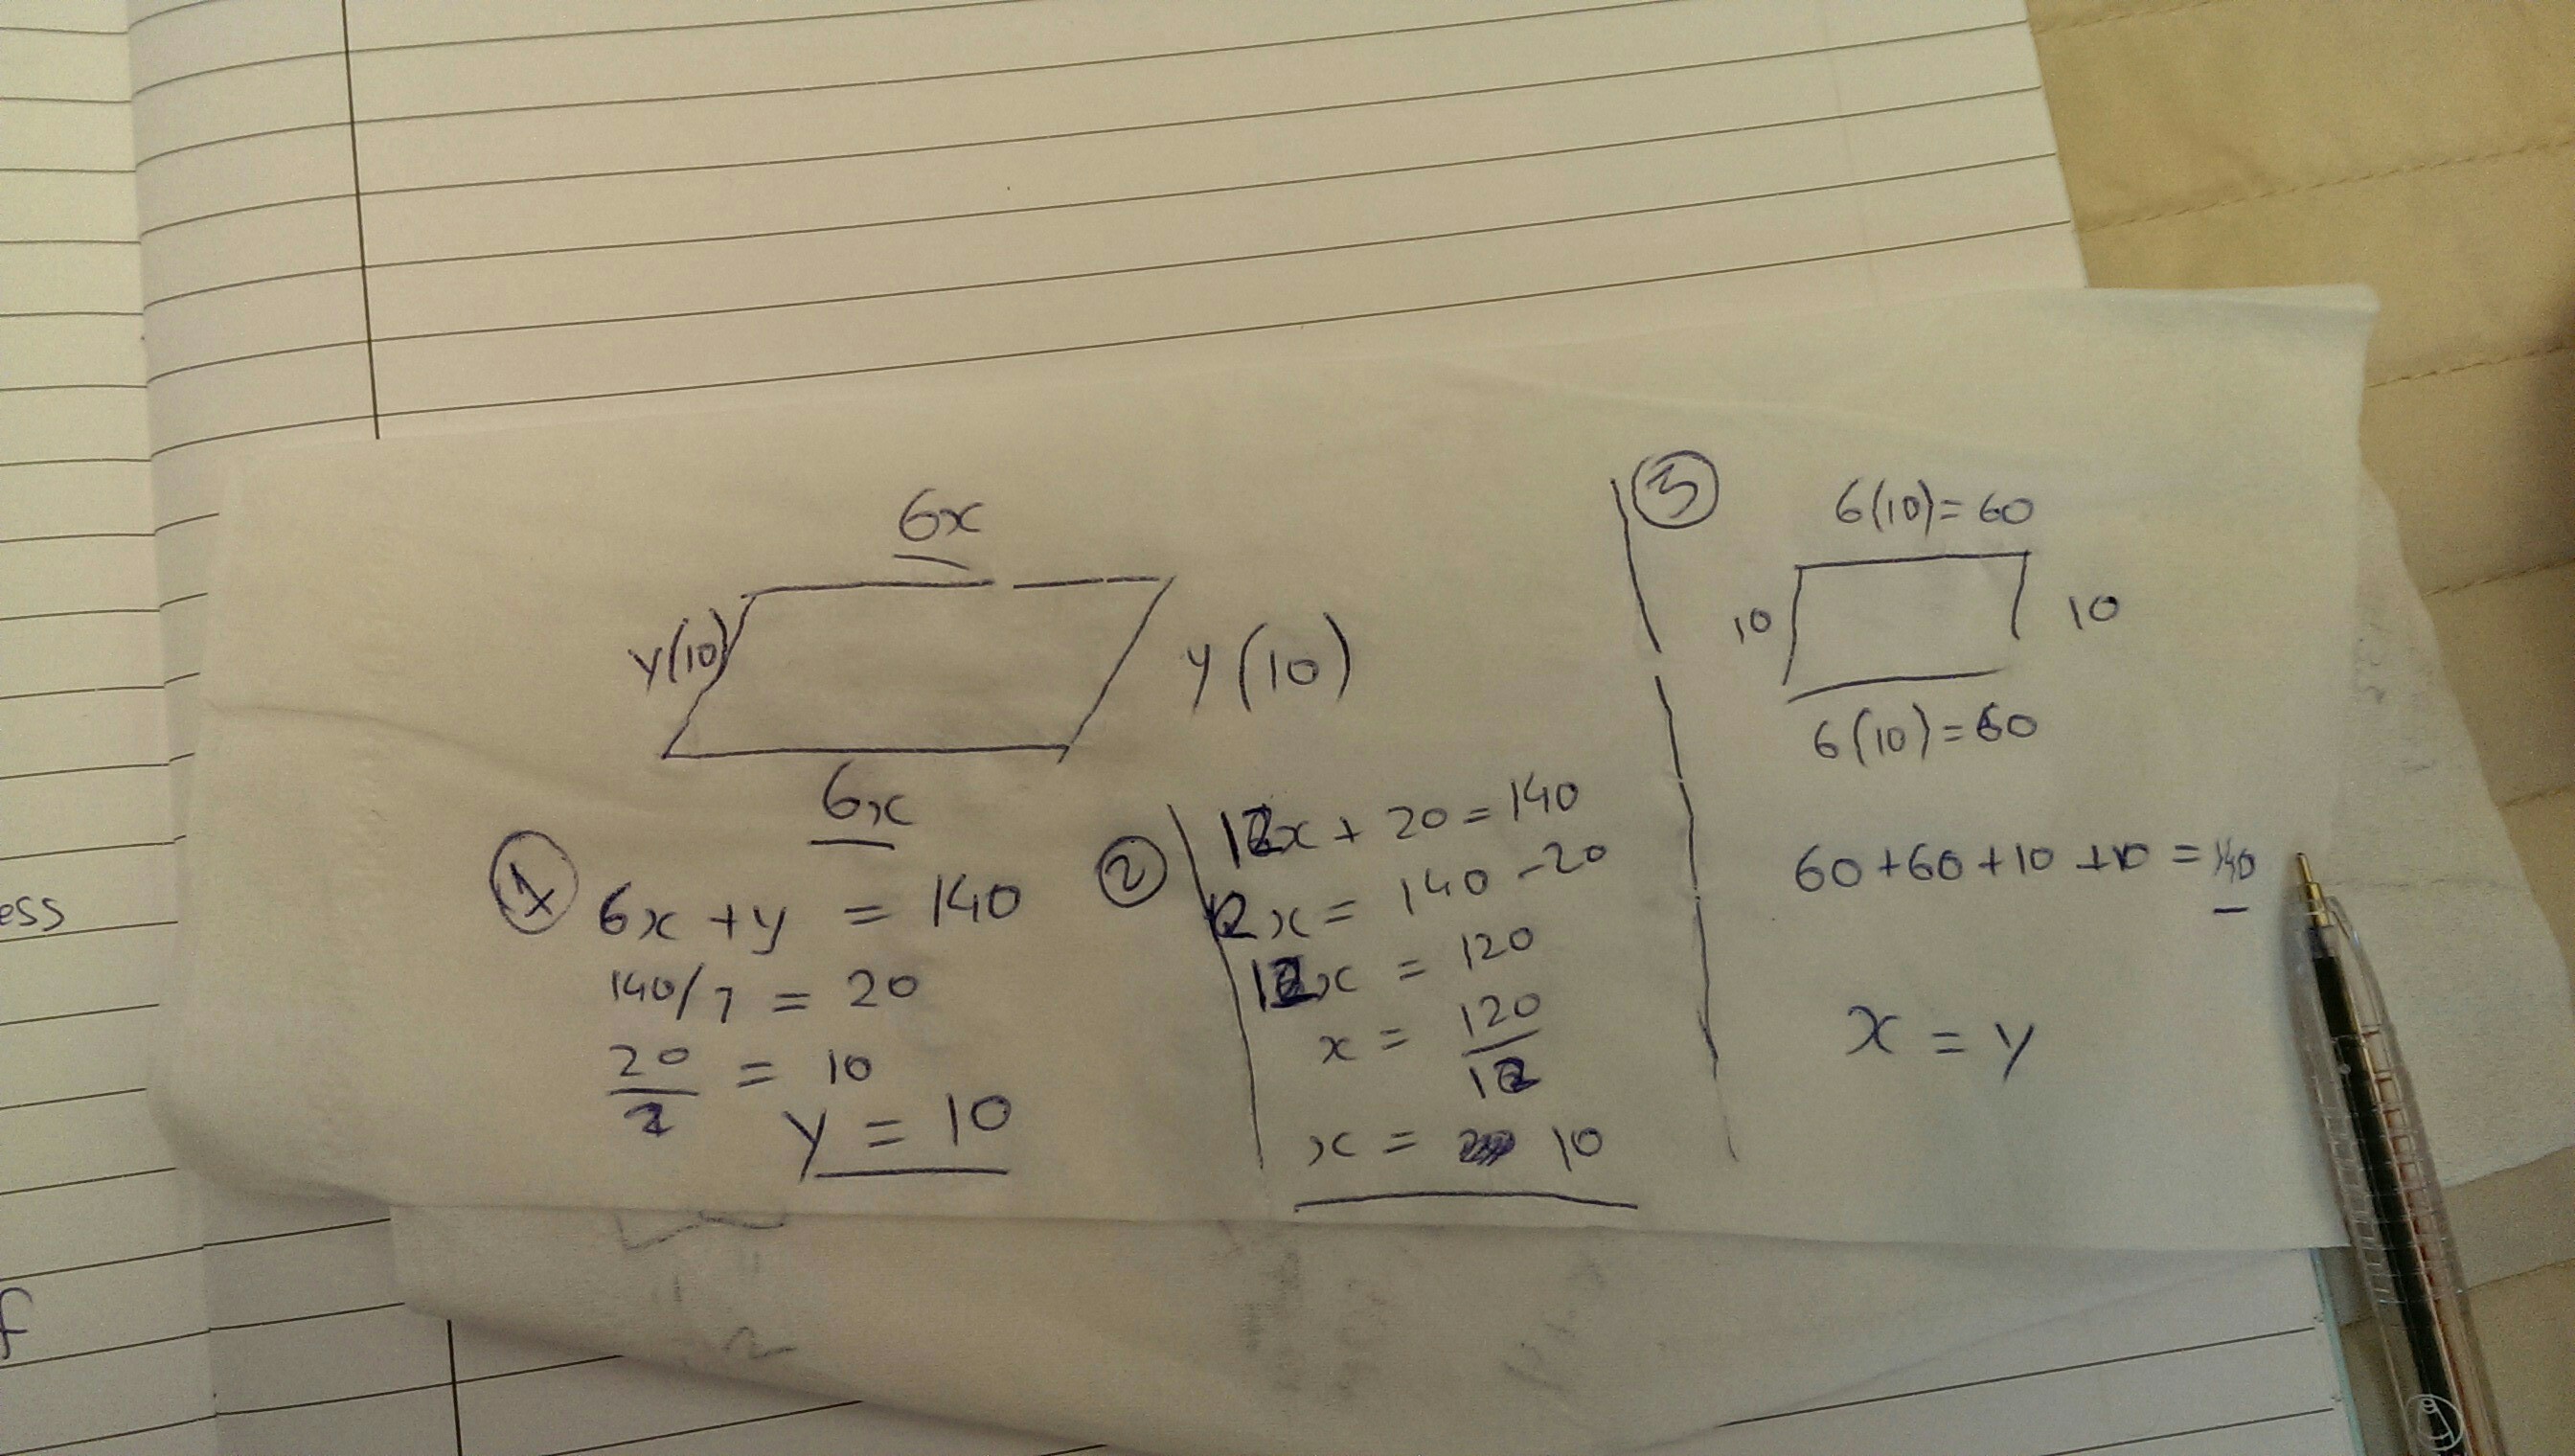 6x
y(10)
y (10)
6x
1
6x + y = 140
140/7 = 20
20
2
= 10
y = 10
2
12x + 20 = 140
12x = 140 - 20
12x = 120
x = 120
12
x = 10
3
6(10)= 60
10
10
6(10)=60
60 + 60 + 10 + 10 = 140
x = y
ess
f